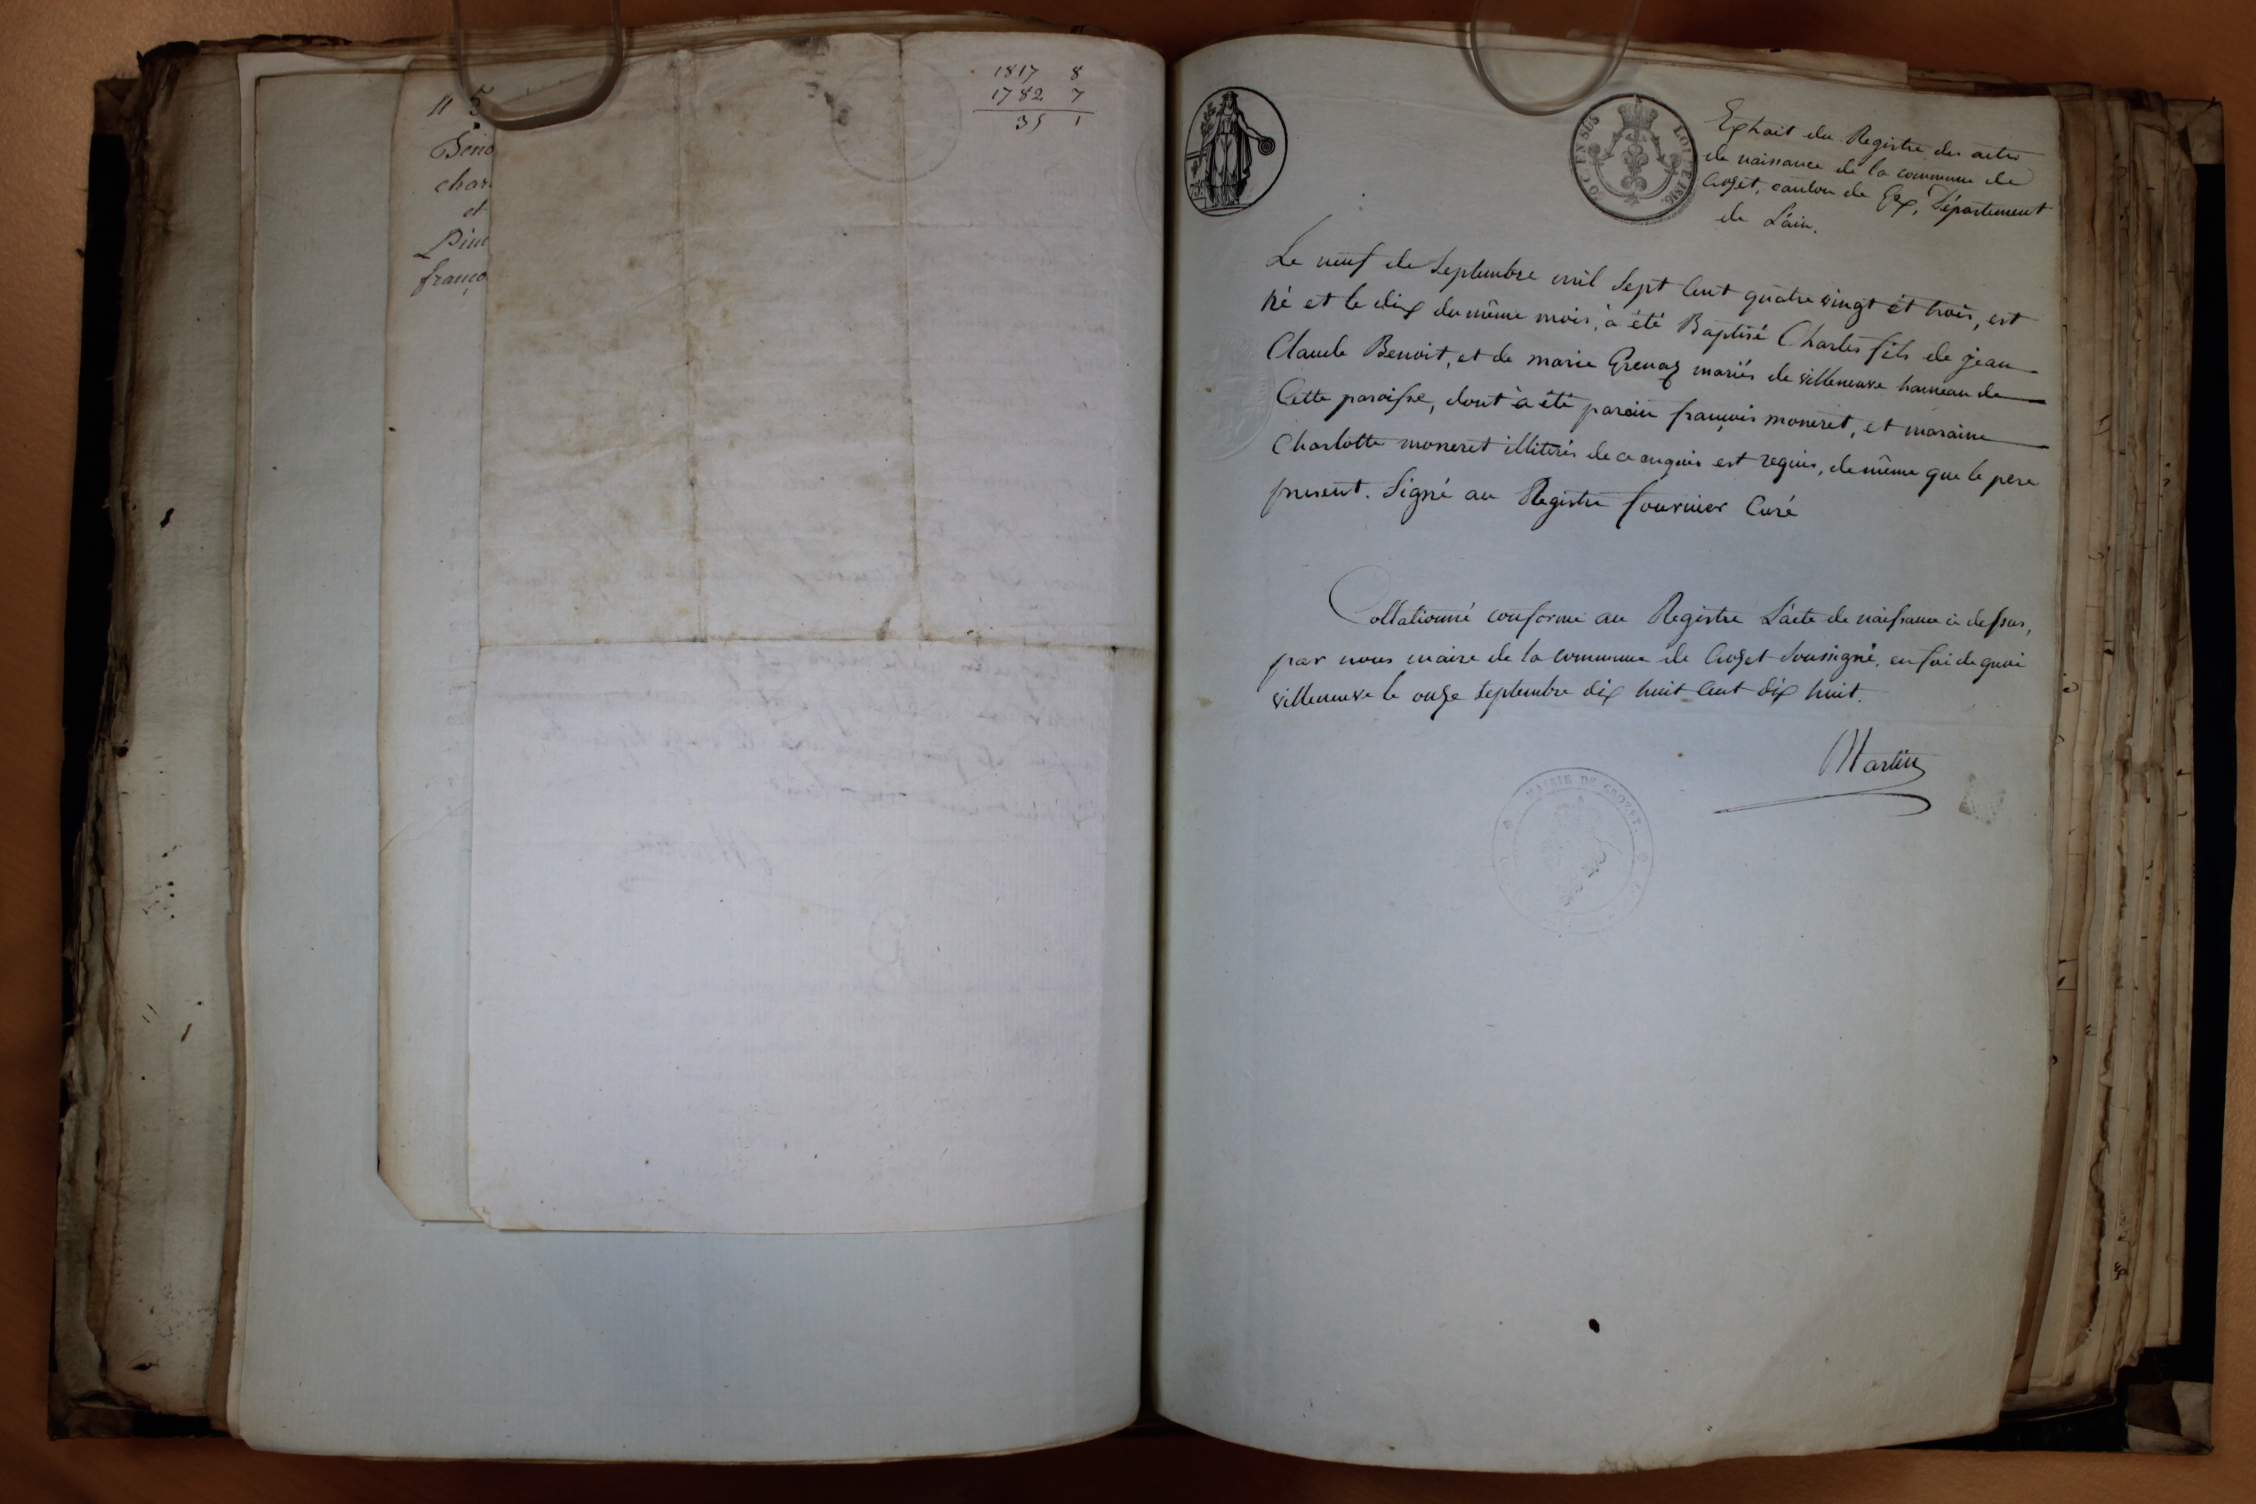 1817 8
1782 7
35 1
n 5
Beno
char
et
Pin
franço
50 C. EN SUS
LOI DE 1816.
Extrait du Registre des actes
de naissance de la commune de
Crozet, canton de Gex, Département
de L'ain.
Le neuf de Septembre mil Sept Cent quatre vingt et trois, est
né et le dix du même mois, à été Baptisé Charles fils de jean
Claude Benoit, et de marie Grenaz mariés de villeneuve hameau de
Cette paroisse, dont à été parain françois moneret, et maraine
Charlotte moneret illitérés de ce enquis est requis, de même que le pere
present. Signé au Registre fournier Curé
Collationné conforme au Registre L'acte de naissance ci dessus,
par nous maire de la commune de Crozet Soussigné, en foi de quoi
villeneuve le onze Septembre dix huit Cent dix huit.
Martin
MAIRIE DE CROZET